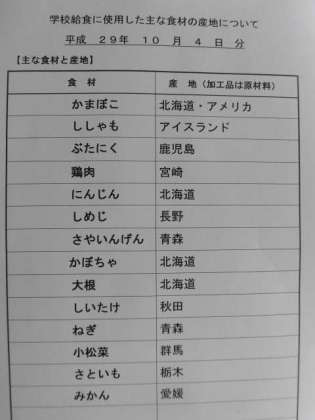 学校給食に使用した主な食材の産地について
平成 29年 10 月 4 日 分
【主な食材と産地】
食 材 産 地（加工品は原材料）
かまぼこ 北海道・アメリカ
ししゃも アイスランド
ぶたにく 鹿児島
鶏肉 宮崎
にんじん 北海道
しめじ 長野
さやいんげん 青森
かぼちゃ 北海道
大根 北海道
しいたけ 秋田
ねぎ 青森
小松菜 群馬
さといも 栃木
みかん 愛媛